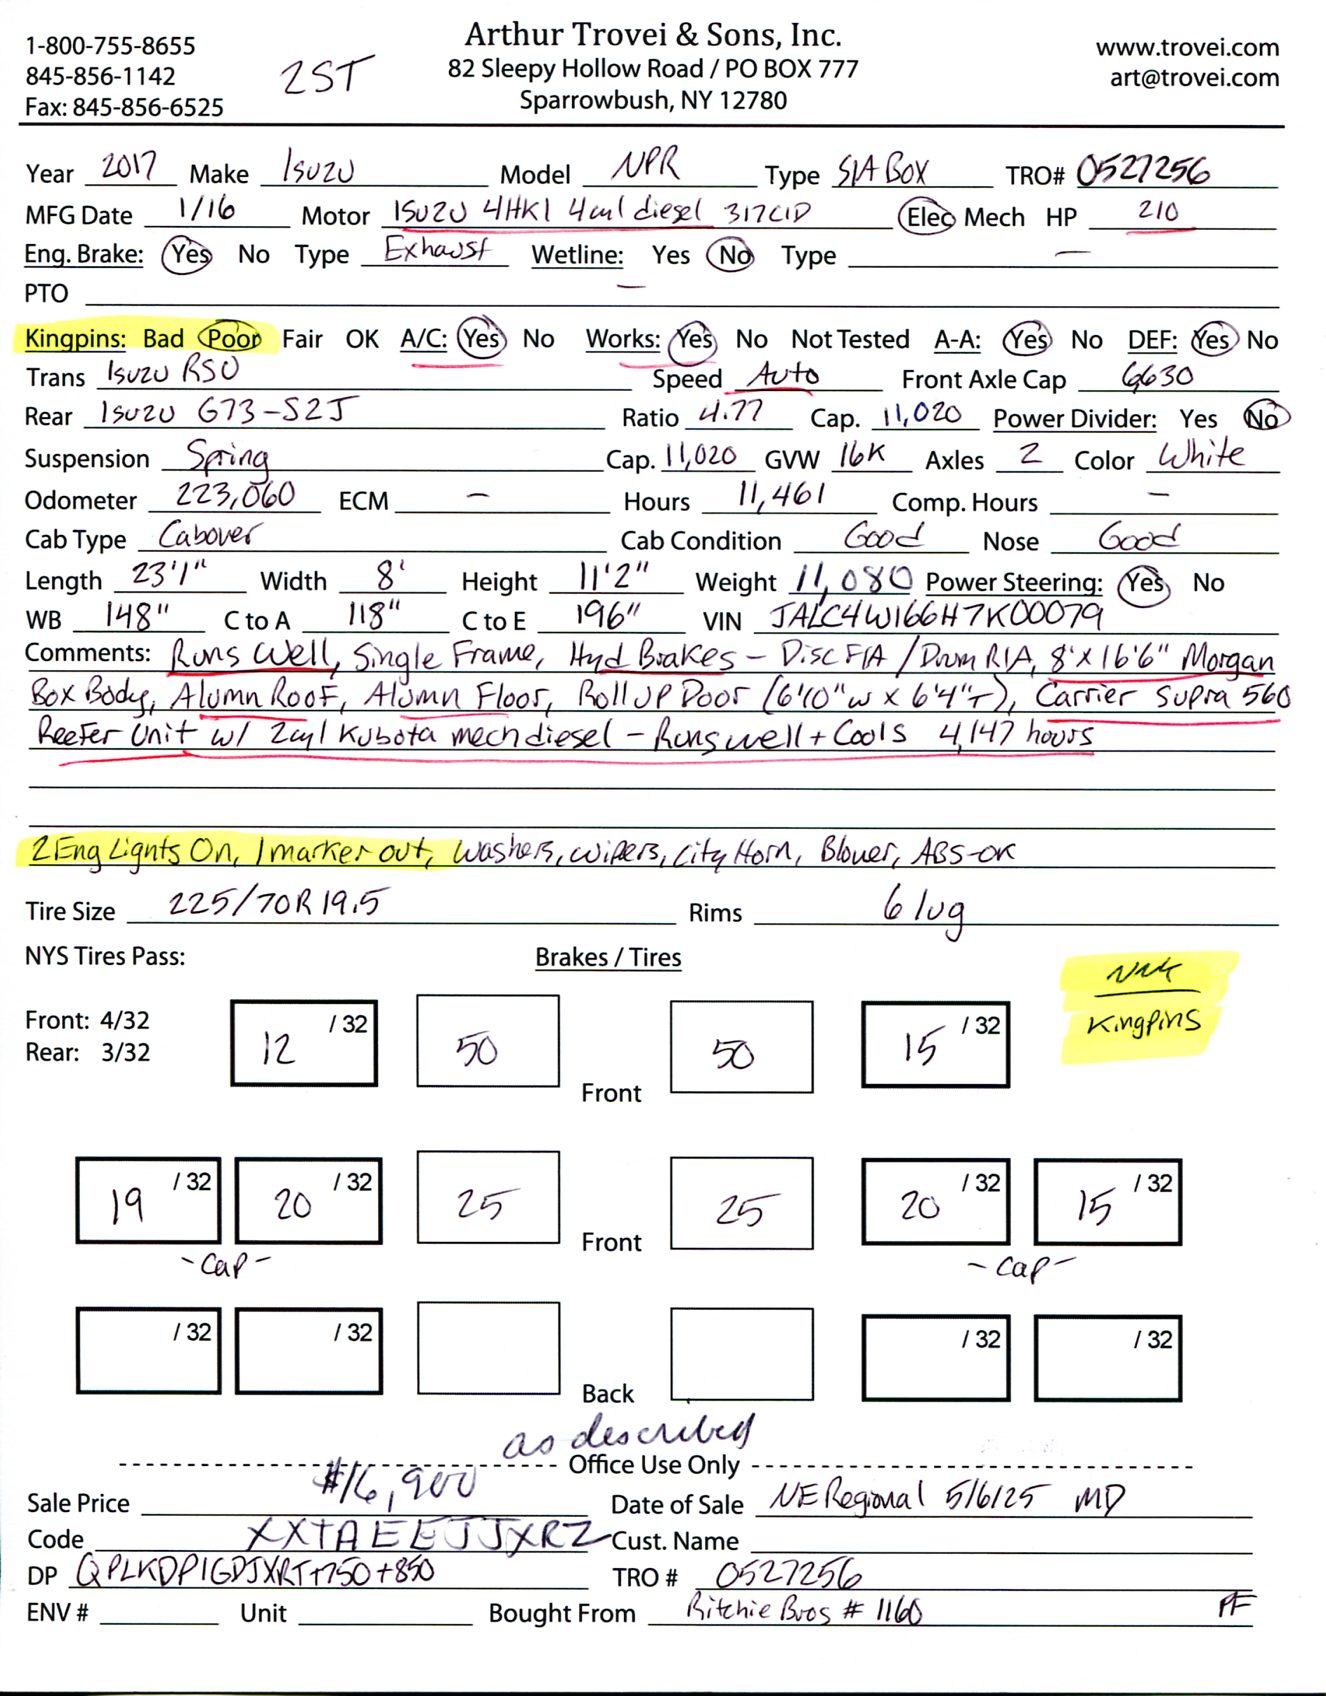 Arthur Trovei & Sons, Inc.
1-800-755-8655 82 Sleepy Hollow Road / PO BOX 777 www.trovei.com
845-856-1142 2ST Sparrowbush, NY 12780 art@trovei.com
Fax: 845-856-6525
Year 2017 Make ISUZU Model NPR Type S/A BOX TRO# 0527256
MFG Date 1/16 Motor ISUZU 4HK1 4cyl diesel 317CID Elec Mech HP 210
Eng. Brake: Yes No Type Exhaust Wetline: Yes No Type —
PTO —
Kingpins: Bad Poor Fair OK A/C: Yes No Works: Yes No Not Tested A-A: Yes No DEF: Yes No
Trans Isuzu RSO Speed Auto Front Axle Cap 6630
Rear ISUZU G73-S2J Ratio 4.77 Cap. 11,020 Power Divider: Yes No
Suspension Spring Cap. 11,020 GVW 16K Axles 2 Color White
Odometer 223,060 ECM — Hours 11,461 Comp. Hours —
Cab Type Cabover Cab Condition Good Nose Good
Length 23'1" Width 8' Height 11'2" Weight 11,080 Power Steering: Yes No
WB 148" C to A 118" C to E 196" VIN JALC4W166H7K00079
Comments: Runs Well, Single Frame, Hyd Brakes - Disc F/A / Drum R/A, 8' X 16'6" Morgan
Box Body, Alumn Roof, Alumn Floor, Roll UP Door (6'10"W X 6'4"T), Carrier Supra 560
Reefer Unit w/ 2cyl Kubota mech diesel - Runs well + Cools 4,147 hours
2 Eng Lights On, 1 marker out, Washers, Wipers, City Horn, Blower, ABS-OK
Tire Size 225/70R19.5 Rims 6 lug
NYS Tires Pass: Brakes / Tires
Kingpins
Front: 4/32 12 /32 50 50 15 /32
Rear: 3/32
Front
19 /32 20 /32 25 25 20 /32 15 /32
Front
-Cap- -Cap-
/32 /32 /32 /32
Back
as described
Office Use Only
Sale Price $16,900 Date of Sale NE Regional 5/6/25 MD
Code XXTAEEJJXRZ Cust. Name
DP QPLKDPIGDJXRT+750+850 TRO # 0527256
ENV # Unit Bought From Ritchie Bros # 1160 PF